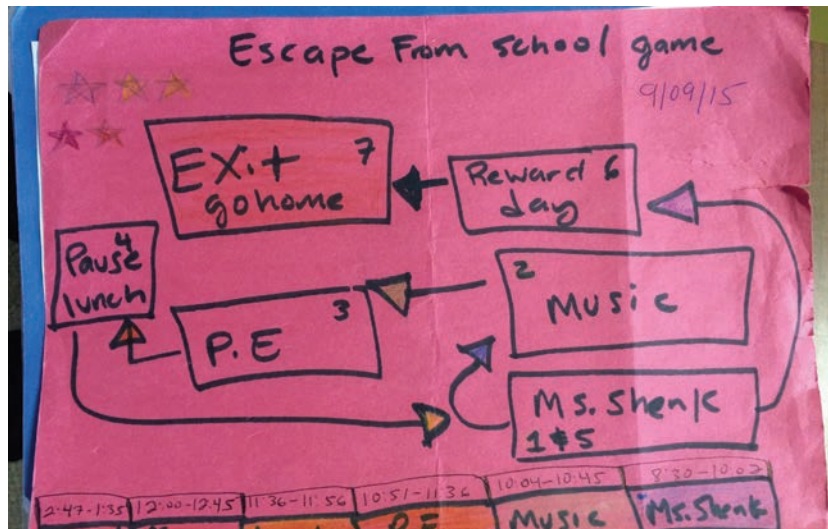 Escape From school game
9/09/15
Exit 7
go home
Reward 6
day
Pause 4
lunch
2
Music
3
P.E
Ms. Shenk
1 & 5
2:47-1:35 12:00-12:45 11:36-11:56 10:51-11:36 10:04-10:45 8:30-10:02
P.E Music Ms. Shenk